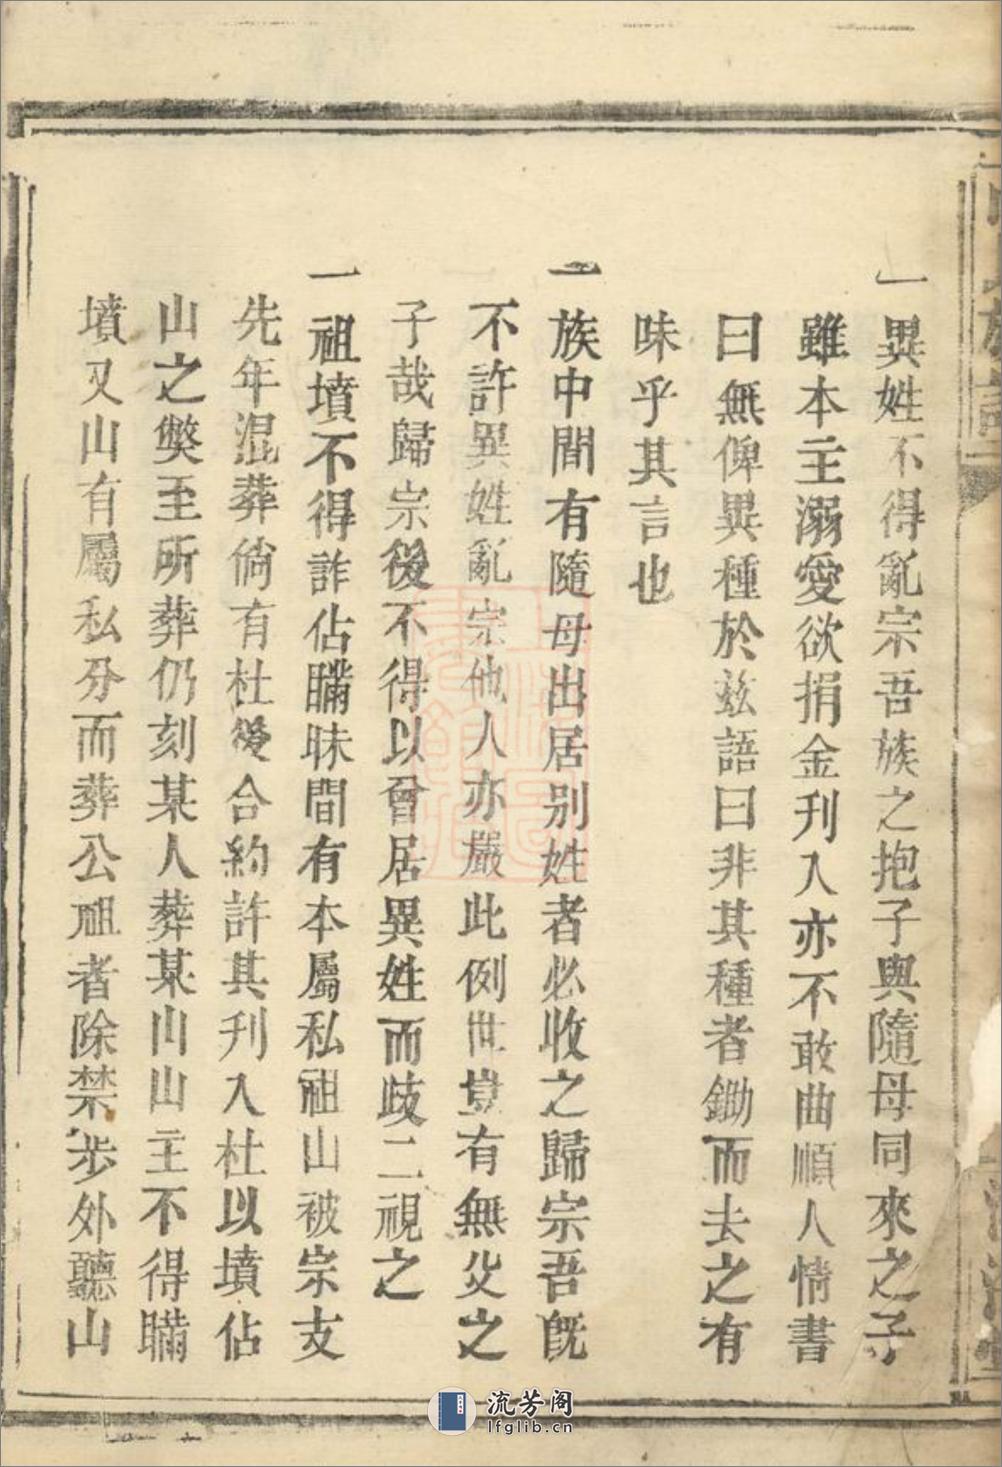 一異姓不得亂宗吾族之抱子與隨母同來之子
雖本主溺愛欲捐金刋入亦不敢曲順人情書
曰無俾異種於兹語曰非其種者鋤而去之有
味乎其言也
一族中間有隨母出居别姓者必收之歸宗吾旣
不許異姓亂宗他人亦嚴此例世豈有無父之
子哉歸宗後不得以曾居異姓而歧二視之
一祖墳不得詐佔瞞昧間有本屬私祖山被宗支
先年混葬倘有杜後合約許其刋入杜以墳佔
山之獘至所葬仍刻某人葬某山山主不得瞞
墳又山有屬私分而葬公祖者除禁步外聽山
流芳阁
lfglib.cn